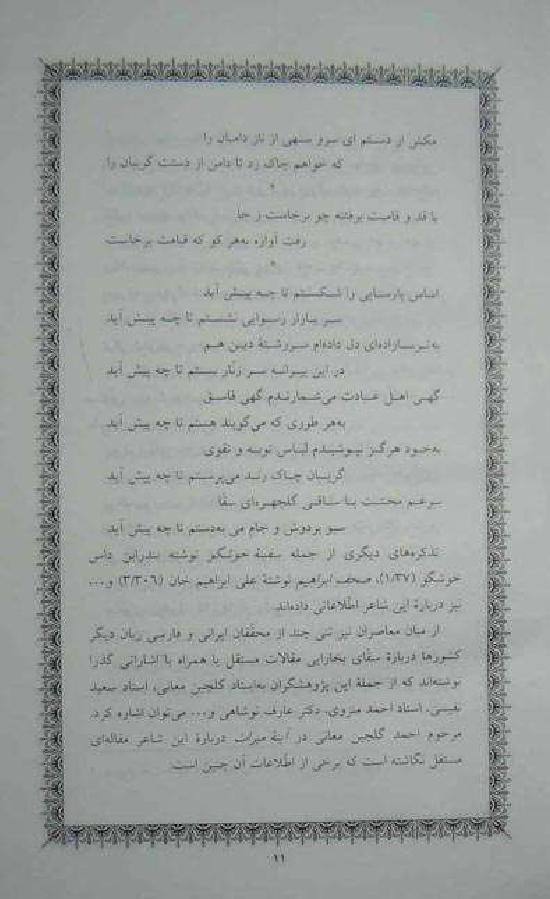 مکش از دستم ای سرو سهی از ناز دامان را
که خواهم چاک زد تا دامن از دستت گریبان را
*
با قد و قامت برفته چو برخاست ز جا
رفت آوازه به‌هر کو که قیامت برخاست
*
اساس پارسایی را شکستم تا چه پیش آید
سر بازار رسوایی نشستم تا چه پیش آید
به‌ترسازاده‌ای دل داده‌ام سررشتهٔ دین هم
در این پیرانه سر زنّار بستم تا چه پیش آید
گهی اهل عبادت می‌شمارندم گهی فاسق
به‌هر طوری که می‌گویند هستم تا چه پیش آید
به‌خود هرگز نپوشیدم لباس توبه و تقوی
گریبان چاک رند می‌پرستم تا چه پیش آید
برغم محتسب با ساقی گلچهره‌ای سقا
سبو بردوش و جام می به‌دستم تا چه پیش آید
تذکره‌های دیگری از جمله سفینهٔ خوشگو نوشته بندرابن داس
خوشگو (۱/۳۷)، صحف ابراهیم نوشتهٔ علی ابراهیم خان (۳/۳۰۶) و...
نیز دربارهٔ این شاعر اطّلاعاتی داده‌اند.
از میان معاصران نیز تنی چند از محقّقان ایرانی و فارسی زبان دیگر
کشورها دربارهٔ سقّای بخارایی مقالات مستقل یا همراه با اشاراتی گذرا
نوشته‌اند که از جملهٔ این پژوهشگران به‌استاد گلچین معانی، استاد سعید
نفیسی، استاد احمد منزوی، دکتر عارف نوشاهی و... می‌توان اشاره کرد.
مرحوم احمد گلچین معانی در آینهٔ میراث دربارهٔ این شاعر مقاله‌ای
مستقل نگاشته است که برخی از اطلاعات آن چنین است:
۱۱